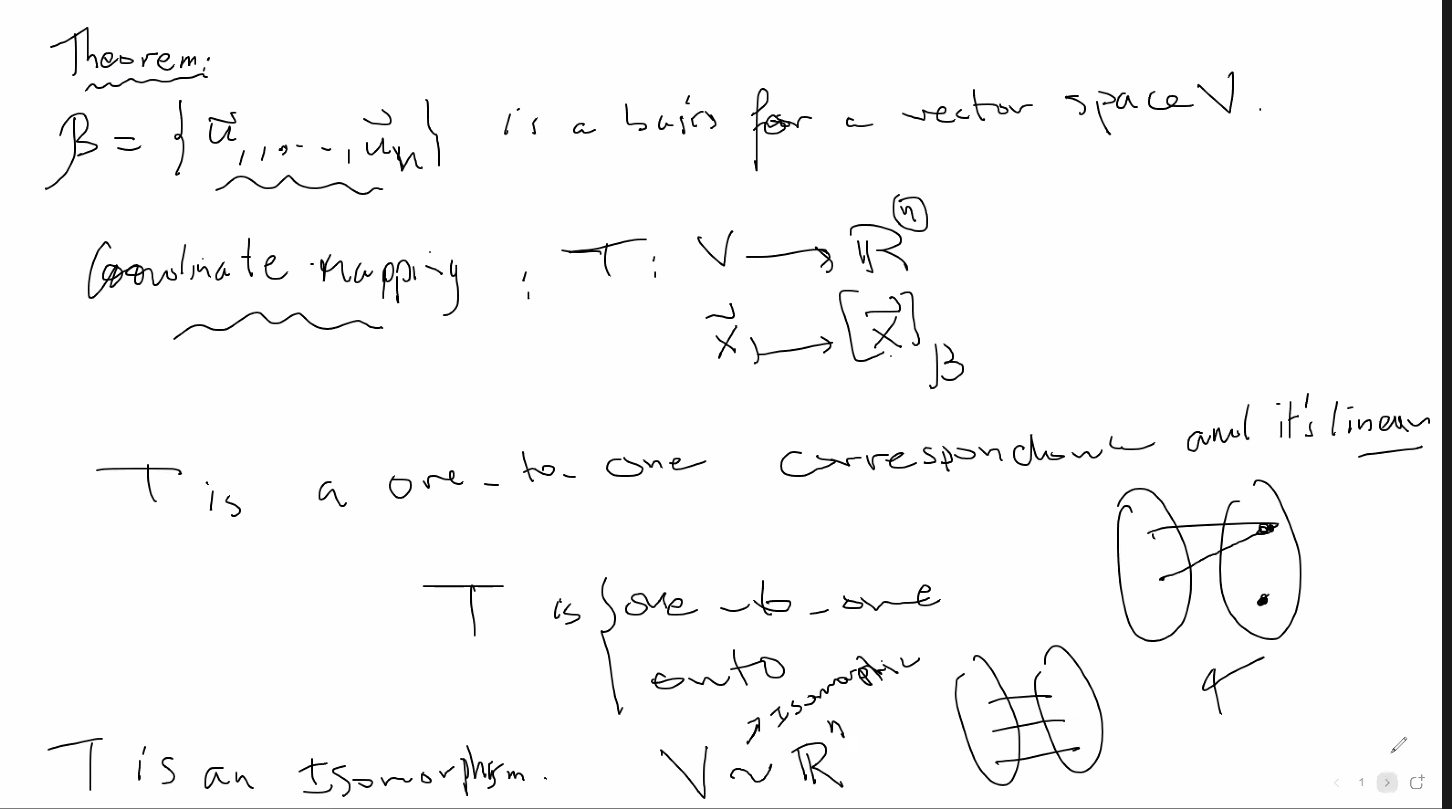 Theorem:
β = {ũ₁, ..., ũₙ} is a basis for a vector space V.
Coordinate mapping : T : V → ℝⁿ
x⃗ ↦ [x⃗]_β
T is a one-to-one correspondence and it's linear
T is { one-to-one
onto
Isomorphic
T is an Isomorphism. V ~ ℝⁿ
1